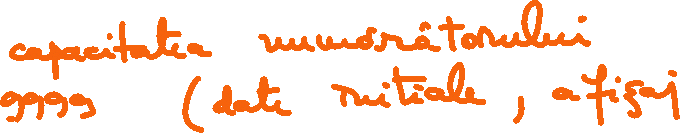 capacitatea numărătorului
9999 (date initiale, afişaj